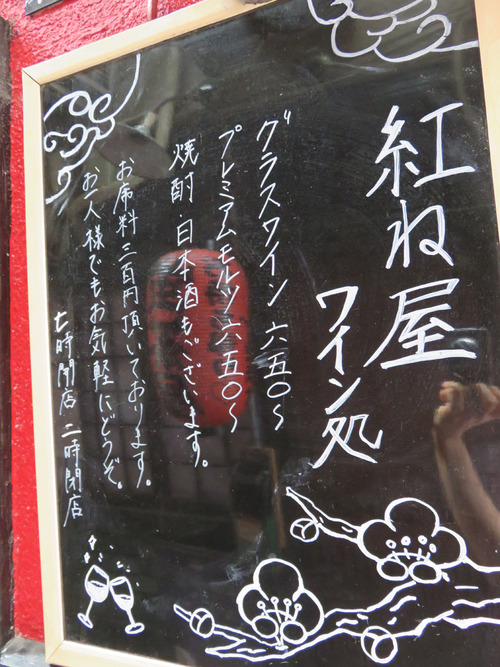 紅ね屋
ワイン処
グラスワイン 六五〇〜
プレミアムモルツ 六五〇〜
焼酎・日本酒もございます。
お席料三百円頂いております。
お一人様でもお気軽にどうぞ。
七時開店 二時閉店